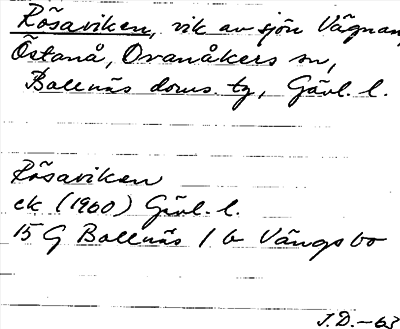 Rösaviken, vik av sjön Vägnan,
Östanå, Ovanåkers sn,
Bollnäs doms. tg, Gävl. l.
Rösaviken
ek (1960) Gävl. l.
15 G Bollnäs 1 b Vängsbo
J.D.-63